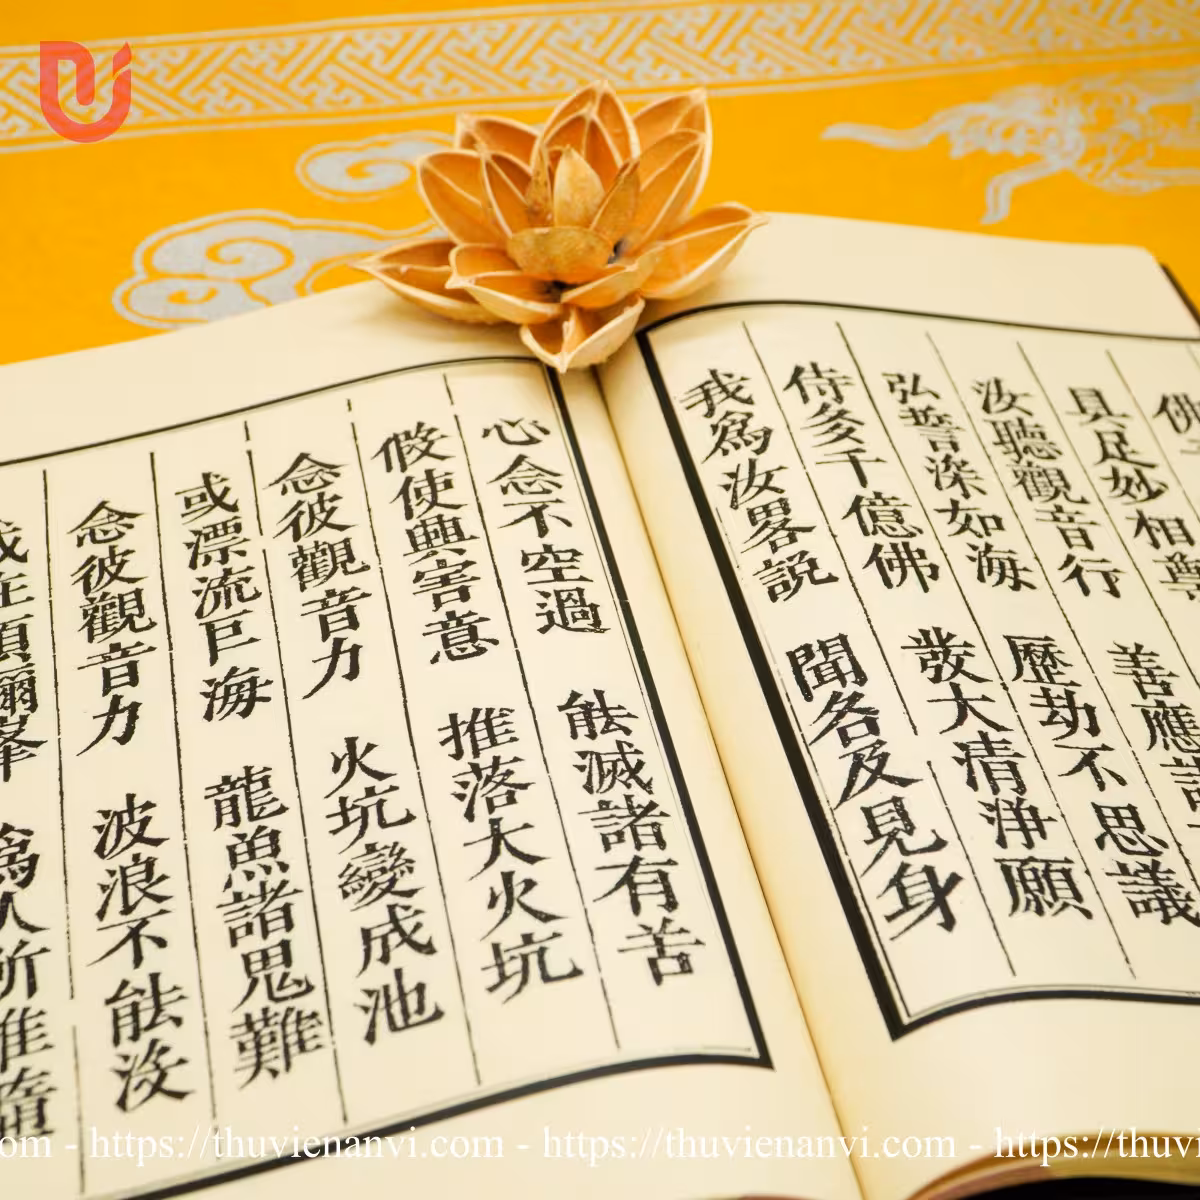 佛
具足妙相尊 善應諸
汝聽觀音行 歷劫不思議
弘誓深如海 發大清淨願
侍多千億佛
我爲汝畧說 聞名及見身
心念不空過 能滅諸有苦
假使興害意 推落大火坑
念彼觀音力 火坑變成池
或漂流巨海 龍魚諸鬼難
念彼觀音力 波浪不能沒
或在須彌峯 爲人所推墮
https://thuvienanvi.com - https://thuvienanvi.com - https://thuvi